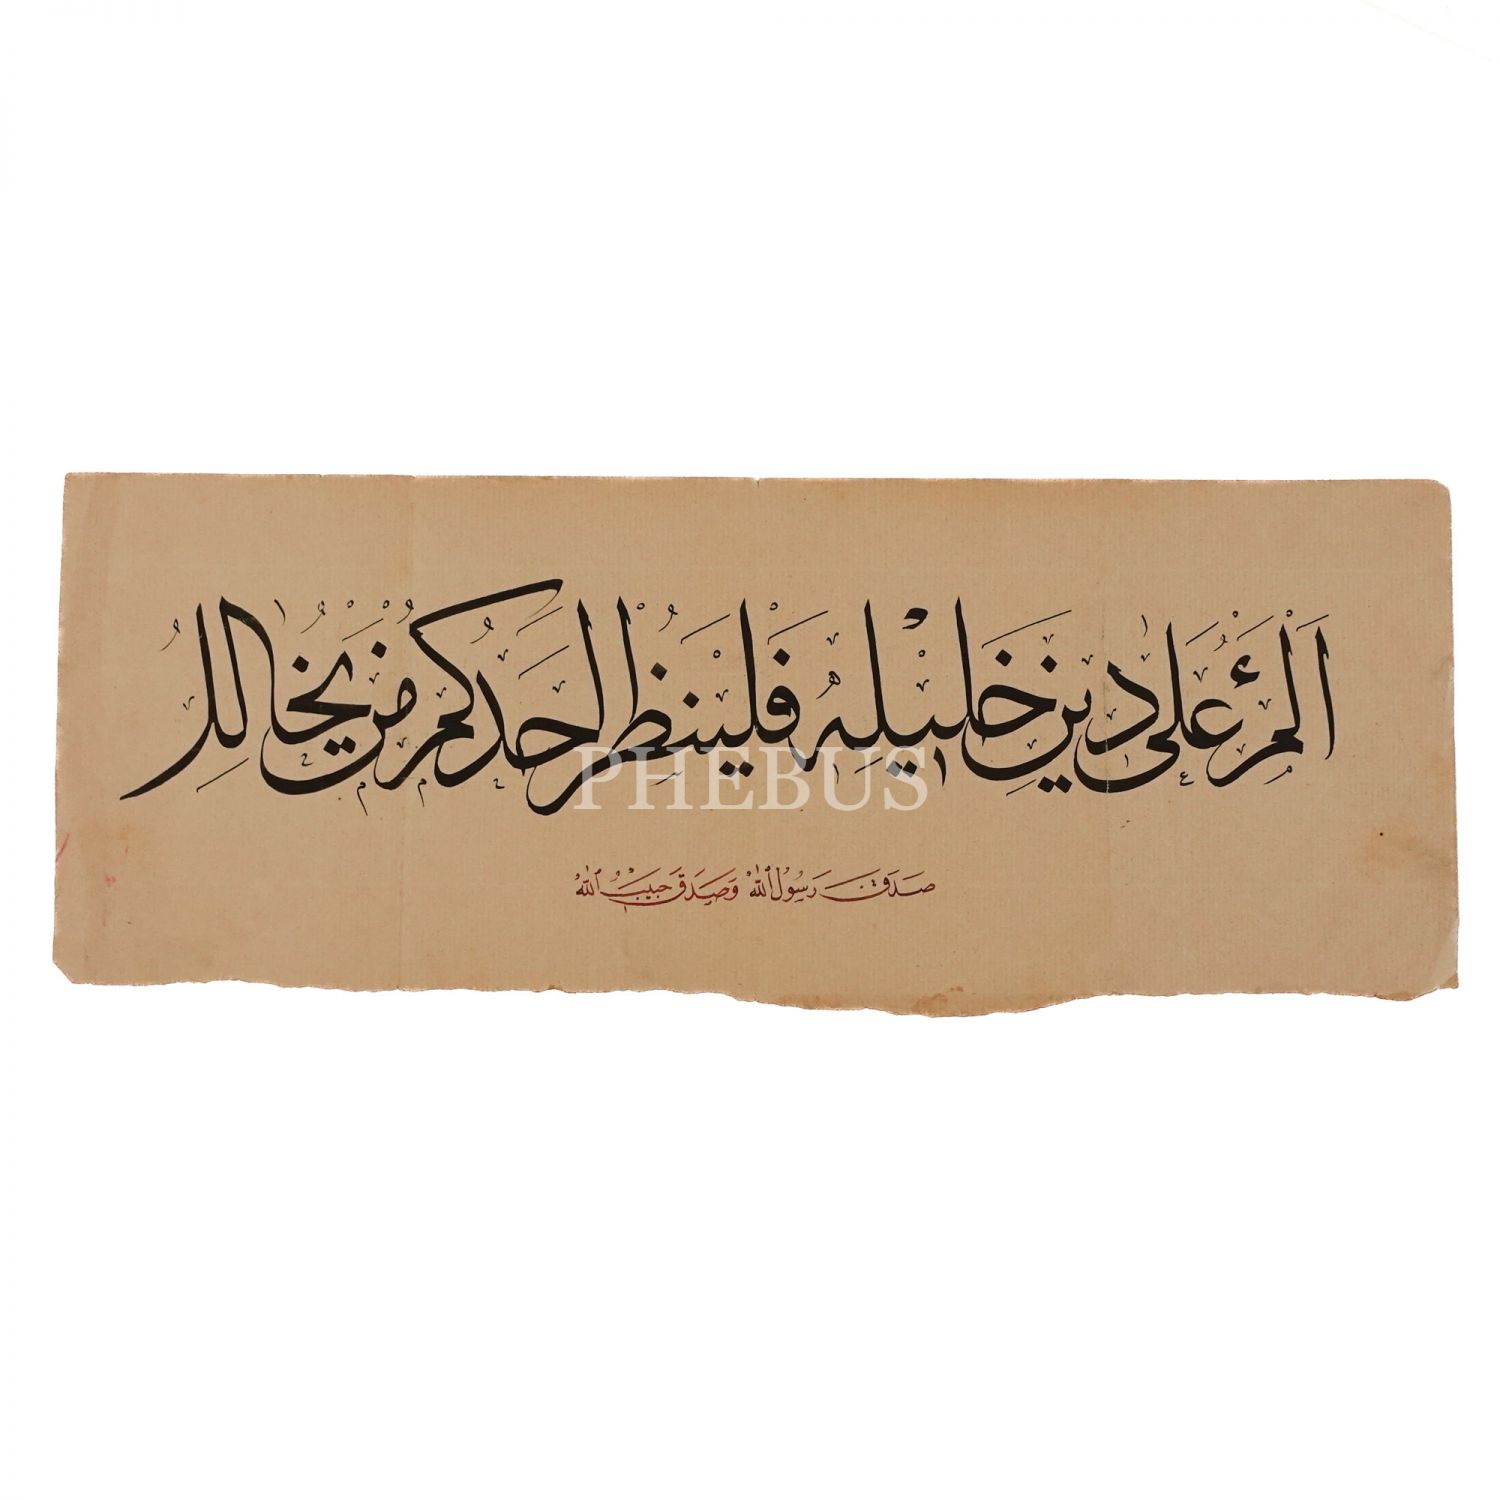 اَلْمَرْءُ عَلَى دِينِ خَلِيلِهِ فَلْيَنْظُرْ اَحَدُكُمْ مَنْ يُخَالِلُ
PHEBUS
صَدَقَ رَسُولُ اللّٰه وَصَدَقَ حَبِيبُ اللّٰه